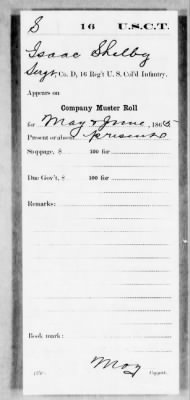 S 16 U.S.C.T.
Isaac Shelby
Sergt, Co. D, 16 Reg't U. S. Col'd Infantry.
Appears on
Company Muster Roll
for May & June, 1865
Present or absent present
Stoppage, $ 100 for
Due Gov't, $ 100 for
Remarks:
Book mark:
May
Copyist.